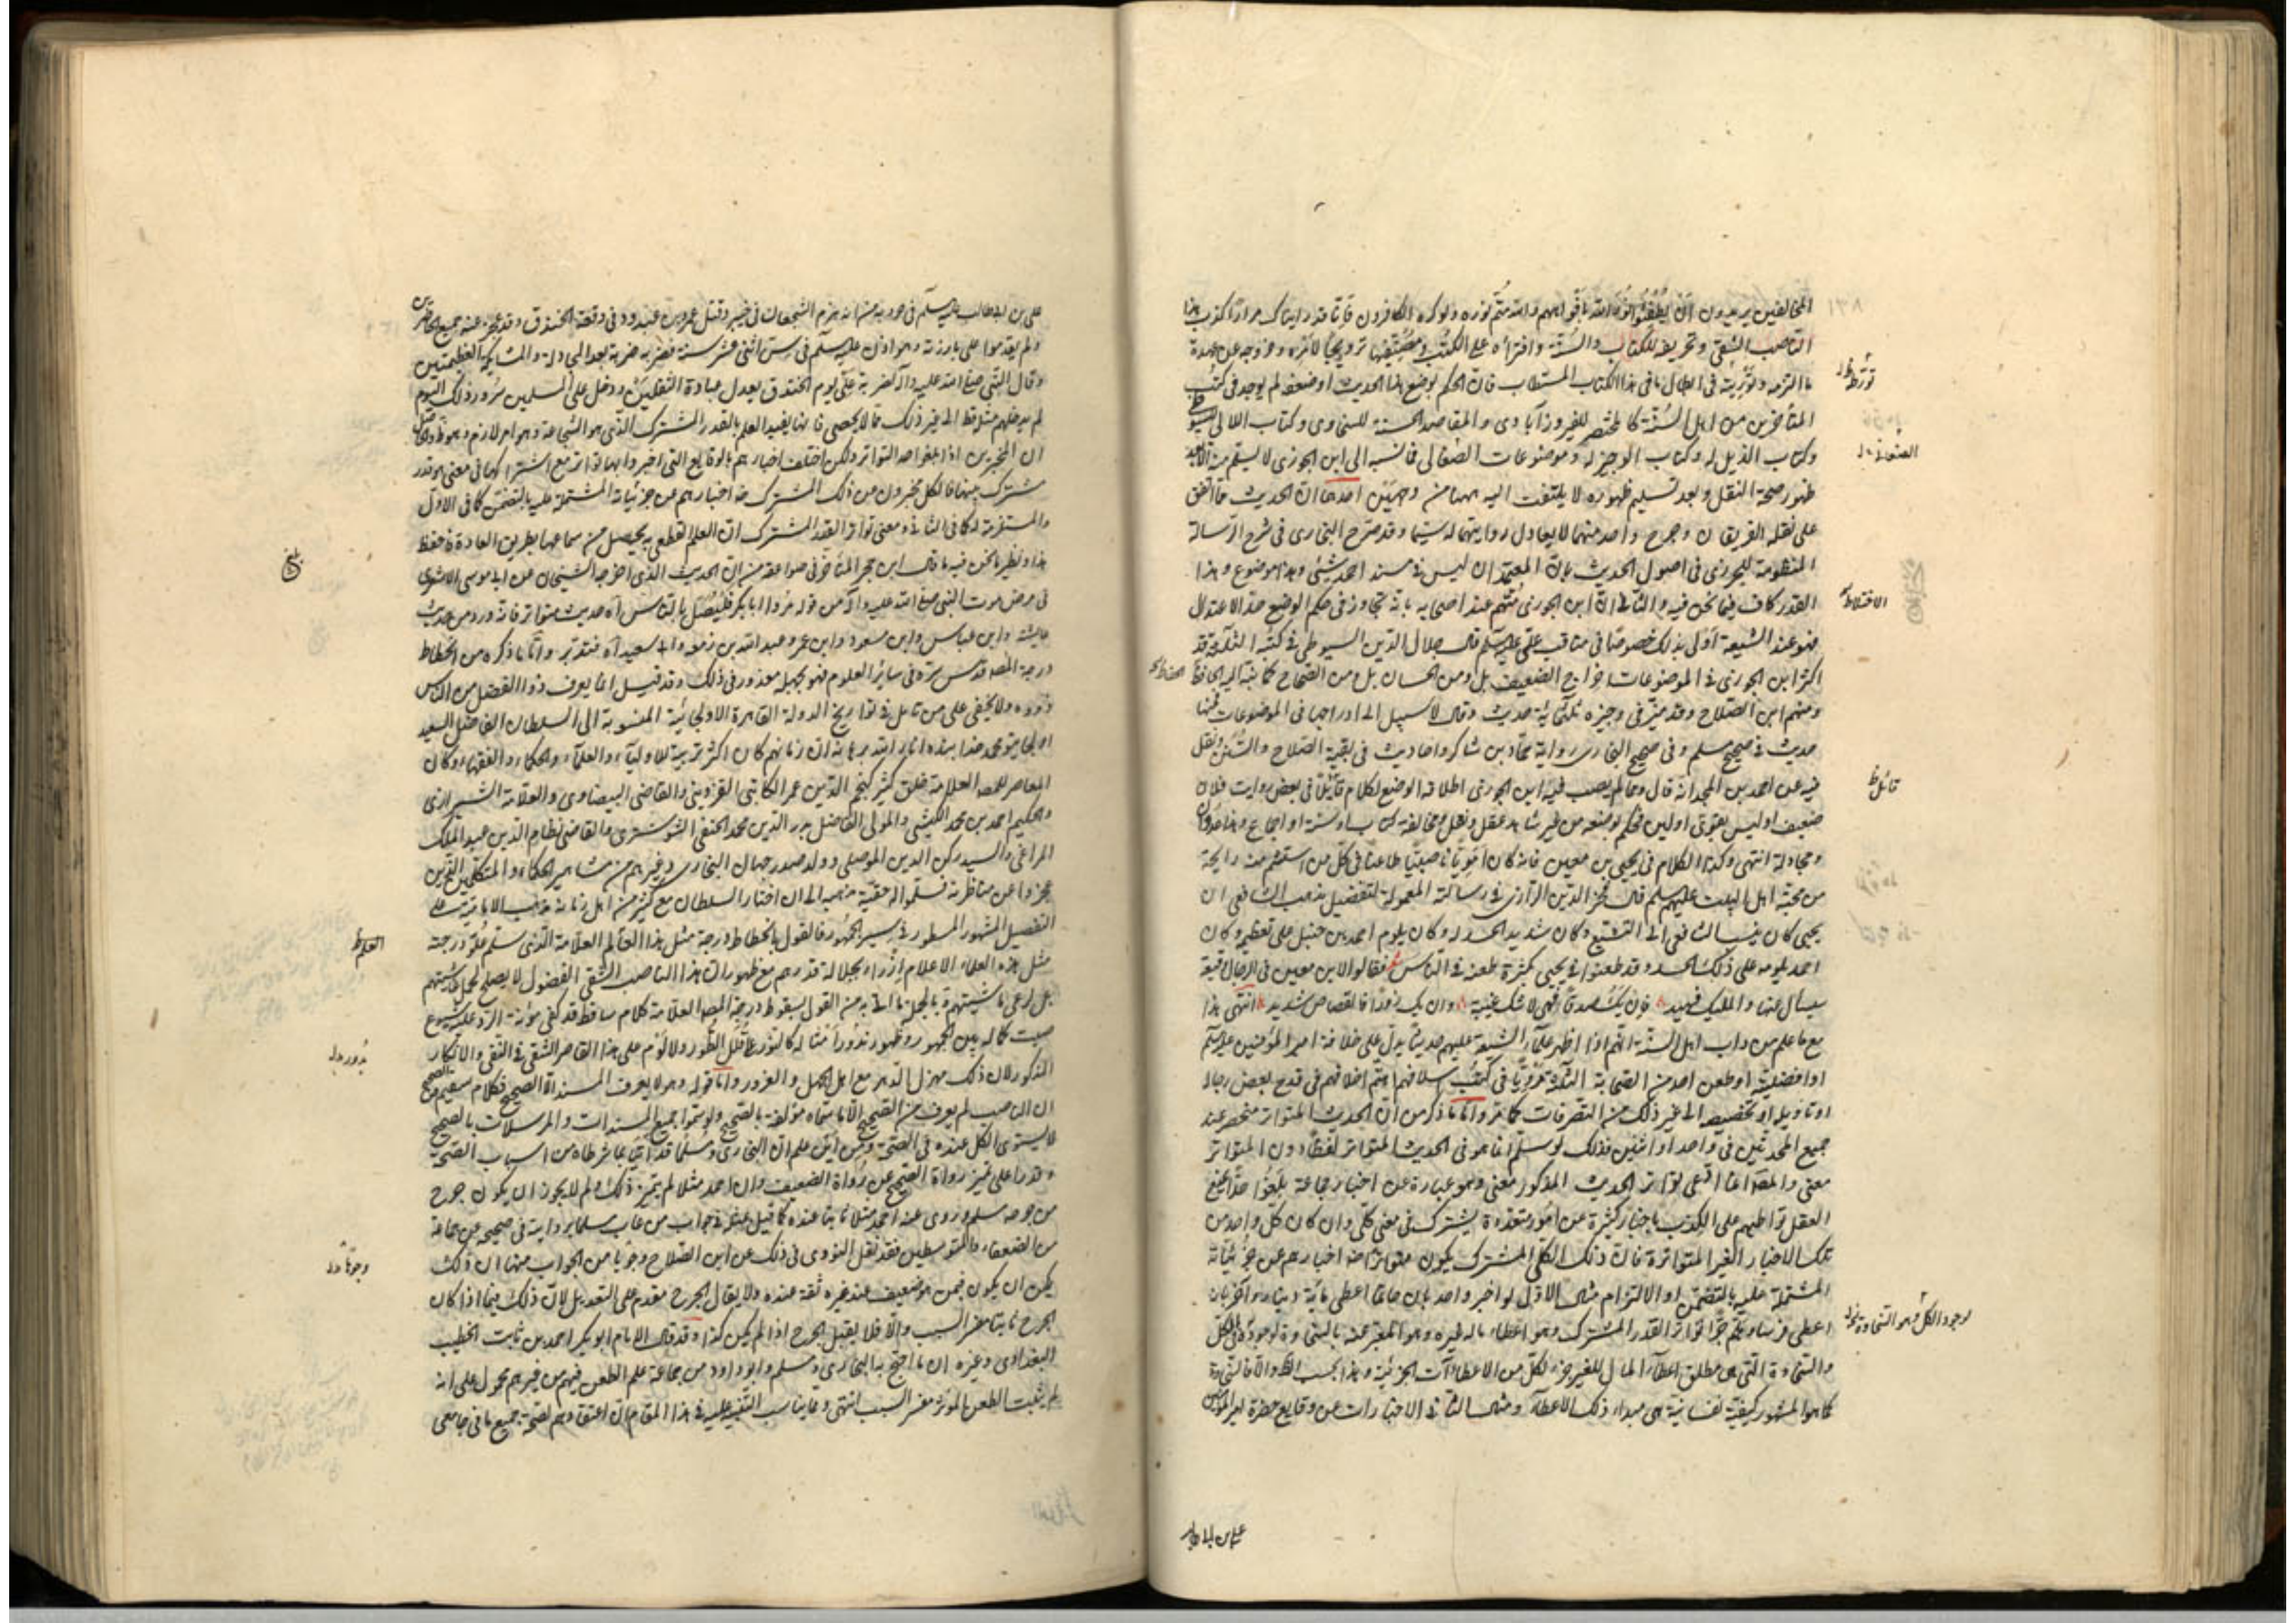 المخالفين يريدون ان يطفئوا نور الله بافواههم والله متم نوره ولو كره الكافرون فانا قد رايناك مرارا كذب هذا
الناصب الشقي وتحريفه للكتاب والسنة وافتراءه على الكتب ومصنفيها ترويجا لامره وخروجه عن عهدة
ما التزمه في ابطال ما في هذا الكتاب المستطاب فان الحكم بوضع هذا الحديث او ضعفه لم يوجد في كتب
المتأخرين من اهل السنة كالمختصر للفيروزآبادي والمقاصد الحسنة للسخاوي وكتاب اللآلي للسيوطي
وكتاب الذيل له وكتاب الوجيز له وموضوعات الصغاني فما نسبه الى ابن الجوزي لا يسلم منه الا بعد
ظهور صحة النقل وبعد تسليم ظهوره لا يلتفت اليه ههنا من وجهين احدهما ان الحديث مما اتفق
على نقله الفريقان وجرح واحد منهما لا يعادل روايتهما له سيما وقد صرح البخاري في شرح الرسالة
المنظومة للجزري في اصول الحديث بان المعتمد ان ليس في مسند احمد شيء وهذا موضوع وهذا
القدر كاف فيما نحن فيه والثاني ان ابن الجوزي متهم عند اصحابه بانه تجاوز في حكم الوضع حد الاعتدال
فهو عند الشيعة اولى بذلك خصوصا في مناقب علي عليه السلم قال جلال الدين السيوطي في كتبه الثلاثة قد
اكثر ابن الجوزي في الموضوعات اخراج الضعيف بل ومن الحسان بل ومن الصحاح كما نبه اليه الحفاظ
ومنهم ابن الصلاح وقد ميز في وجيزه ثلثمائة حديث وقال لا سبيل الى ادراجها في الموضوعات فمنها
حديث في صحيح مسلم وفي صحيح البخاري رواية حماد بن شاكر واحاديث في بقية الصحاح والسنن ونقل
فيه عن احمد بن المجد انه قال ومما لم يصب فيه ابن الجوزي اطلاقه الوضع لكلام قائل في بعض رواته فلان
ضعيف او ليس بقوي او لين فحكم بوضعه من غير شاهد عقل ونقل ومخالفة كتاب او سنة او اجماع وهذا عدوان
ومجادلة انتهى وكذا الكلام في يحيى بن معين فانه كان امويا ناصبيا طاعنا في كل من استشم منه رايحة
من محبة اهل البيت عليهم السلم قال فخر الدين الرازي في رسالته المعمولة لتفضيل مذهب الشافعي ان
يحيى كان ينسب الشافعي الى التشيع وكان شديد الحسد له وكان يلوم احمد بن حنبل على تعظيمه وكان
احمد يلومه على ذلك الحسد وقد طعنوا في يحيى بكثرة طعنه في الناس فقالوا لابن معين في الرجال وقيعة
سيسال عنها والمليك شهيد فان يك صدقا فهي لا شك غيبة وان يك زورا فالقصاص شديد انتهى هذا
مع ما علم من داب اهل السنة انهم اذا اظهر علماء الشيعة عليهم حديثا يدل على خلافة امير المؤمنين عليه السلم
او افضليته او طعن احد من الصحابة الثلاثة مرويا في كتب اسلافهم اهتم اخلافهم في قدح بعض رجاله
او تاويله او تخصيصه الى غير ذلك من التصرفات كما مر واما ما ذكره من ان الحديث المتواتر منحصر عند
جميع المحدثين في واحد او اثنين فذلك لو سلم انما هو في الحديث المتواتر لفظا دون المتواتر
معنى والمص انما ادعى تواتر الحديث المذكور معنى وهو عبارة عن اخبار جماعة بلغوا حدا يمنع
العقل تواطيهم على الكذب باخبار كثيرة عن امور متعددة يشترك في معنى كلي وان كان كل واحد من
تلك الاخبار الغير المتواترة فان ذلك الكلي المشترك يكون متواترا من اخبارهم عن جزئياته
المشتملة عليه بالتضمن او الالتزام مثال الاول لو اخبر واحد بان حاتما اعطى مائة دينار وآخر بان
اعطى فرسا وهلم جرا تواتر القدر المشترك وهو اعطاء ماله لغيره وهو المعبر عنه بالسخاوة لوجوده في الكل
والسخاوة التي هي مطلق اعطاء المال للغير جزء لكل من الاعطاآت الجزئية وهذا بحسب الظ والا فالسخاوة
كما هو المشهور كيفية نفسانية هي مبداء ذلك الاعطاء ومثال الثاني الاخبارات عن وقايع حضرة امير المؤمنين
الاختلاط
قائل ظ
علي بن ابي طالب
علي بن ابي طالب عليه السلم في حروبه من انه هزم الشجعان في خيبر وقتل عمرو بن عبد ود في وقعة الخندق وقد عجز عنه جميع الحاضرين
ولم يقدموا على بارزته وهو اذن عليه السلم في سن اثني عشر سنة فضربه ضربة بعد المجادلة والمشابكة العظيمتين
وقال النبي صلى الله عليه وآله لضربة علي يوم الخندق يعدل عبادة الثقلين ودخل على المسلمين سرور ذلك اليوم
لم يدخلهم مثله قط الى غير ذلك مما لا يحصى فانها يفيد العلم بالقدر المشترك الذي هو الشجاعة وهو امر لازم
ان المخبرين اذا بلغوا حد التواتر ولكن اختلف اخبارهم بالوقايع التي اخبروا بها تواتر مع اشتراكها في معنى هو قدر
مشترك بينها فالكل مخبرون عن ذلك المشترك ضد اخبارهم عن جزئياته المشتملة عليه بالتضمن كما في الاول
والمستلزمة له كما في الثاني ومعنى تواتر القدر المشترك ان العلم القطعي به يحصل من سماعها بطريق العادة فاحفظ
هذا ونظير ما نحن فيه ما قال ابن حجر المتأخر في صواعقه من ان الحديث الذي اخرجه الشيخان عن ابي موسى الاشعري
في مرض موت النبي صلى الله عليه وآله من قوله مروا ابا بكر فليصل بالناس آه حديث متواتر فانه ورد من حديث
عايشة وابن عباس وابن مسعود وابن عمر وعبد الله بن زمعة وابي سعيد آه فتدبر واما ما ذكره من انحطاط
درجة المص قدس سره في ساير العلوم فهو بجهله معذور في ذلك وقد قيل انما يعرف ذوا الفضل من الناس
ذووه ولا يخفى على من تامل في تواريخ الدولة القاهرة الاولجايتية المنسوبة الى السلطان الفاضل السعيد
اولجايتو محمد خدابنده انار الله برهانه ان زمانهم كان اكثر تربية للاولياء والعلماء والحكماء والفقهاء وكان
المعاصر للمص العلامة خلق كثير كنجم الدين عمر الكاتبي القزويني والقاضي البيضاوي والعلامة الشيرازي
والحكيم احمد بن محمد الكيشي والمولى الفاضل بدر الدين محمد الحنفي الشوشتري والقاضي نظام الدين عبد الملك
المراغي والسيد ركن الدين الموصلي وولد صدر جهان البخاري وغيرهم من مشاهير الحكماء والمتكلمين الذين
عجزوا عن مناظرته فسلموا له حقية مذهبه الى ان اختار السلطان مع كثير من اهل زمانه مذهب الامامية على
التفصيل المشهور المسطور في سير الجمهور فالقول بانحطاط درجة مثل هذا العالم العلامة الذي سلم علو درجته
مثل هذه العلماء الاعلام ازراء بجلالة قدرهم مع ظهور ان هذا الناصب الشقي الفضول لا يصلح لحمل غاشيتهم
بل لرعي ماشيتهم وبالجملة ما اتى به من القول بسقوط درجة المص العلامة كلام ساقط قد كفى مؤنة الرد عليه شيوع
صيت كماله بين الجمهور وظهور ندور امثاله كالنور على قلل الطور ولا لوم على هذا القاصر الشقي في النفي والانكار
المذكور لان ذلك مهزل الدهر مع اهل الجهل والغرور واما قوله وهو لا يعرف المسند الا الصحيح فكلام سقيم
ان الناصب لم يعرف من الصحيح الا ما سماه مؤلفه بالصحيح ولو سموا جميع المسندات والمرسلات بالصحيح
لا يستوي الكل عنده في الصحة ومن اين علم ان البخاري ومسلما قد اتيا بما شرطاه من اسباب الصحة
وقدرا على تميز رواة الصحيح عن رواة الضعيف وان احمد مثلا لم يتميز ذلك ولم لا يجوز ان يكون جرح
من جرحه مسلم وروى عنه احمد مثلا ثابتا عنده كما قيل مثله في جواب من عاب مسلما بروايته في صحيحه عن جماعة
من الضعفاء والمتوسطين فقد نقل النووي في ذلك عن ابن الصلاح وجوها من الجواب منها ان ذلك
يمكن ان يكون فيمن هو ضعيف عند غيره ثقة عنده ولا يقال الجرح مقدم على التعديل لان ذلك فيما اذا كان
الجرح ثابتا مفسر السبب والا فلا يقبل الجرح اذا لم يكن كذا وقد قال الامام ابو بكر احمد بن ثابت الخطيب
البغدادي وغيره ان ما احتج به البخاري ومسلم وابو داود من جماعة علم الطعن فيهم من غيرهم محمول على انه
لم يثبت الطعن المؤثر مفسر السبب انتهى ومما يناسب التنبيه عليه في هذا المقام ان اعتقادهم لصحة جميع ما في جامعي
بلغ